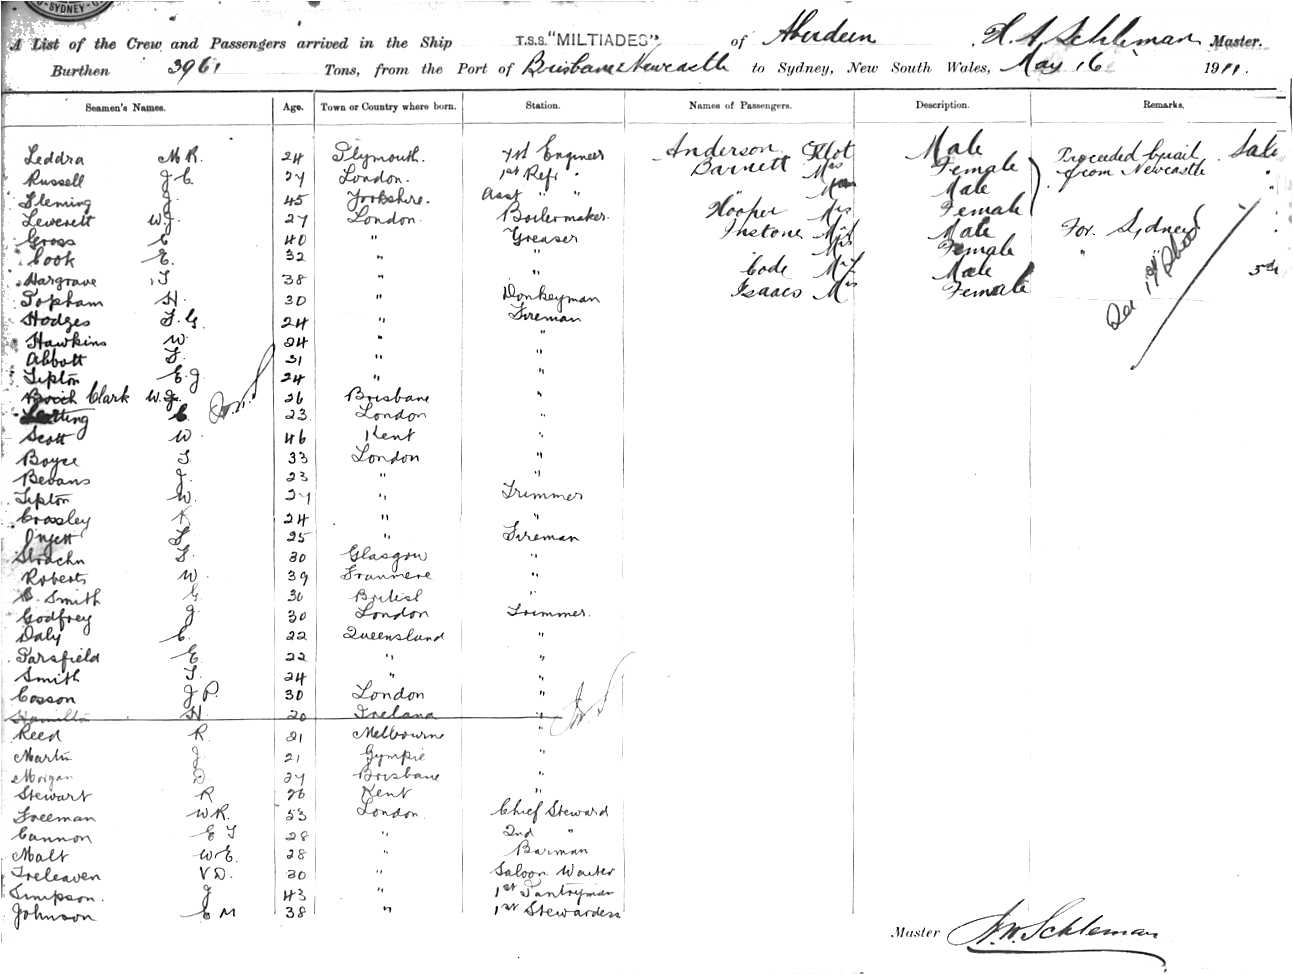 SYDNEY
A List of the Crew and Passengers arrived in the Ship T.S.S. "MILTIADES" of Aberdeen, Schleman Master.
Burthen 3961 Tons, from the Port of Brisbane & Newcastle to Sydney, New South Wales, May 16 1911.
Seamen's Names. Age. Town or Country where born. Station. Names of Passengers. Description. Remarks.
Leddra M R. 24 Plymouth. 7th Engineer Anderson Male Proceeded by rail
Russell J C 27 London. 1st Refr. Barnett Mrs Female from Newcastle "
Fleming J. 45 Yorkshire. Asst " " Male "
Leverett W J. 27 London Boilermaker. Hooper Mrs Female "
Gross C 40 " Greaser Instone Mr Male For Sydney
Cook E. 32 " " Mrs Female " "
Hargrave T 38 " " Code Mr Male
Topham H. 30 " Donkeyman Isaacs Mrs Female
Hodges F. G. 24 " Fireman
Hawkins W 24 " "
Abbott F. 31 " "
Tipton E J 24 " "
Clark W. J. 26 Brisbane "
C. 23 London "
Scott W 46 Kent "
Boyce T 33 London "
Bevans J. 23 " "
Tipton W. 27 " Trimmer
Crossley 24 " "
F 25 " Fireman
Strachn F. 30 Glasgow "
Roberts W. 39 "
C. Smith G 30 British "
Godfrey J 30 London Trimmer.
Daly C. 22 Queensland "
Parsfield E 22 " "
Smith T. 24 " "
Cosson J P. 30 London "
Hamilton H 20 Ireland "
Reed R. 21 Melbourne "
Martin J 21 Gympie "
Morgan D 27 Brisbane "
Stewart R 26 Kent "
Freeman W R. 53 London. Chief Steward
Cannon E T 28 " 2nd "
Malt W E. 28 " Barman
Treleaven V D. 30 " Saloon Waiter
Simpson J 43 " 1st Pantryman
Johnson E M 38 " 1st Stewardess
Master Schleman